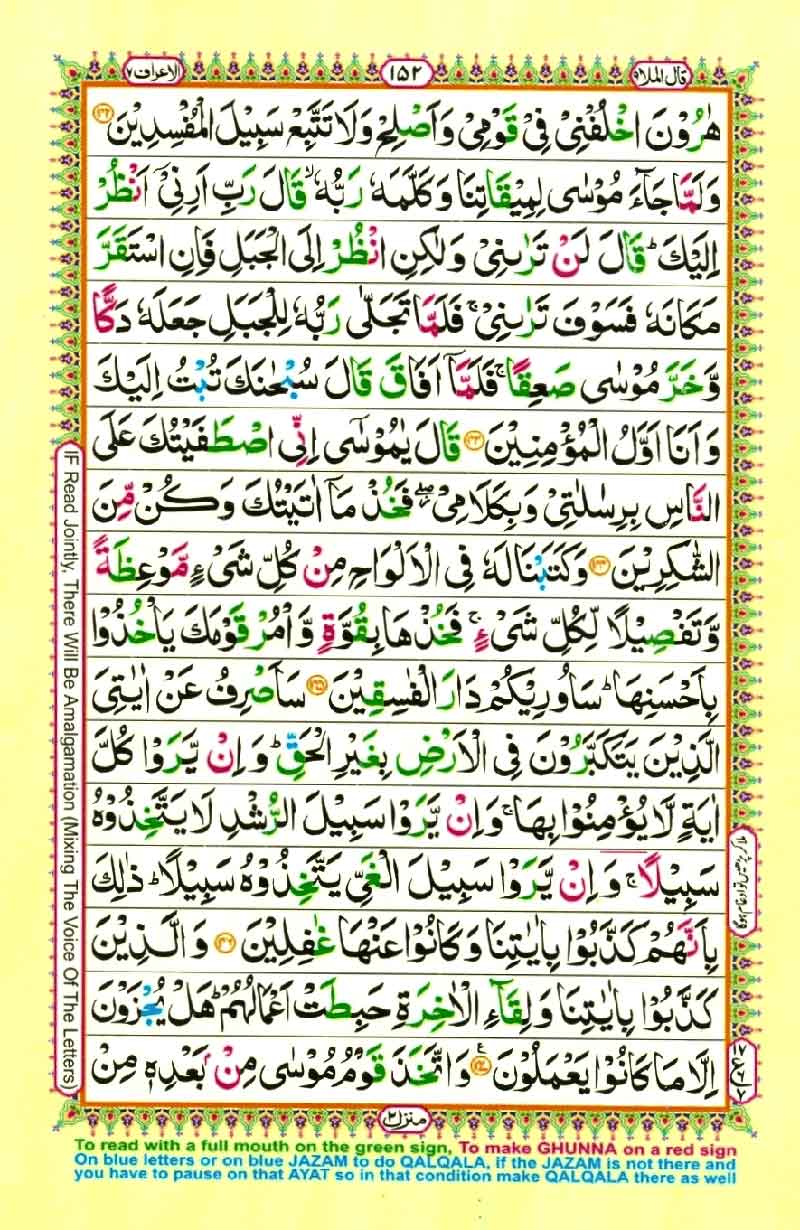 قال الملا۹
۱۵۲
الاعراف ۷
هٰرُوۡنَ اخۡلُفۡنِىۡ فِىۡ قَوۡمِىۡ وَاَصۡلِحۡ وَلَا تَتَّبِعۡ سَبِيۡلَ الۡمُفۡسِدِيۡنَ ﴿۱۴۲﴾
وَلَمَّا جَآءَ مُوۡسٰى لِمِيۡقَاتِنَا وَكَلَّمَهٗ رَبُّهٗ ۙ قَالَ رَبِّ اَرِنِىۡۤ اَنۡظُرۡ
اِلَيۡكَ ؕ قَالَ لَنۡ تَرٰٮنِىۡ وَلٰـكِنِ انْظُرۡ اِلَى الۡجَـبَلِ فَاِنِ اسۡتَقَرَّ
مَكَانَهٗ فَسَوۡفَ تَرٰٮنِىۡ ۚ فَلَمَّا تَجَلّٰى رَبُّهٗ لِلۡجَبَلِ جَعَلَهٗ دَكًّا
وَّخَرَّ مُوۡسٰى صَعِقًا ۚ فَلَمَّاۤ اَفَاقَ قَالَ سُبۡحٰنَكَ تُبۡتُ اِلَيۡكَ
وَاَنَا اَوَّلُ الۡمُؤۡمِنِيۡنَ ﴿۱۴۳﴾ قَالَ يٰمُوۡسٰٓى اِنِّى اصۡطَفَيۡتُكَ عَلَى
النَّاسِ بِرِسٰلٰتِىۡ وَبِكَلَامِىۡ ۖ فَخُذۡ مَاۤ اٰتَيۡتُكَ وَكُنۡ مِّنَ
الشّٰكِرِيۡنَ ﴿۱۴۴﴾ وَكَتَبۡنَا لَهٗ فِى الۡاَلۡوَاحِ مِنۡ كُلِّ شَىۡءٍ مَّوۡعِظَةً
وَّتَفۡصِيۡلًا لِّكُلِّ شَىۡءٍ ۚ فَخُذۡهَا بِقُوَّةٍ وَّاۡمُرۡ قَوۡمَكَ يَاۡخُذُوۡا
بِاَحۡسَنِهَا ؕ سَاُورِيۡكُمۡ دَارَ الۡفٰسِقِيۡنَ ﴿۱۴۵﴾ سَاَصۡرِفُ عَنۡ اٰيٰتِىَ
الَّذِيۡنَ يَتَكَبَّرُوۡنَ فِى الۡاَرۡضِ بِغَيۡرِ الۡحَـقِّ ؕ وَاِنۡ يَّرَوۡا كُلَّ
اٰيَةٍ لَّا يُؤۡمِنُوۡا بِهَا ۚ وَاِنۡ يَّرَوۡا سَبِيۡلَ الرُّشۡدِ لَا يَتَّخِذُوۡهُ
سَبِيۡلًا ۚ وَّاِنۡ يَّرَوۡا سَبِيۡلَ الۡغَىِّ يَتَّخِذُوۡهُ سَبِيۡلًا ؕ ذٰلِكَ
بِاَنَّهُمۡ كَذَّبُوۡا بِاٰيٰتِنَا وَكَانُوۡا عَنۡهَا غٰفِلِيۡنَ ﴿۱۴۶﴾ وَالَّذِيۡنَ
كَذَّبُوۡا بِاٰيٰتِنَا وَلِقَآءِ الۡاٰخِرَةِ حَبِطَتۡ اَعۡمَالُهُمۡ ؕ هَلۡ يُجۡزَوۡنَ
اِلَّا مَا كَانُوۡا يَعۡمَلُوۡنَ ﴿۱۴۷﴾ وَاتَّخَذَ قَوۡمُ مُوۡسٰى مِنۡۢ بَعۡدِهٖ مِنۡ
منزل ۲
IF Read Jointly, There Will Be Amalgamation (Mixing The Voice Of The Letters)
ملا کر پڑھیں تو ادغام ہوگا
To read with a full mouth on the green sign, To make GHUNNA on a red sign
On blue letters or on blue JAZAM to do QALQALA, if the JAZAM is not there and
you have to pause on that AYAT so in that condition make QALQALA there as well